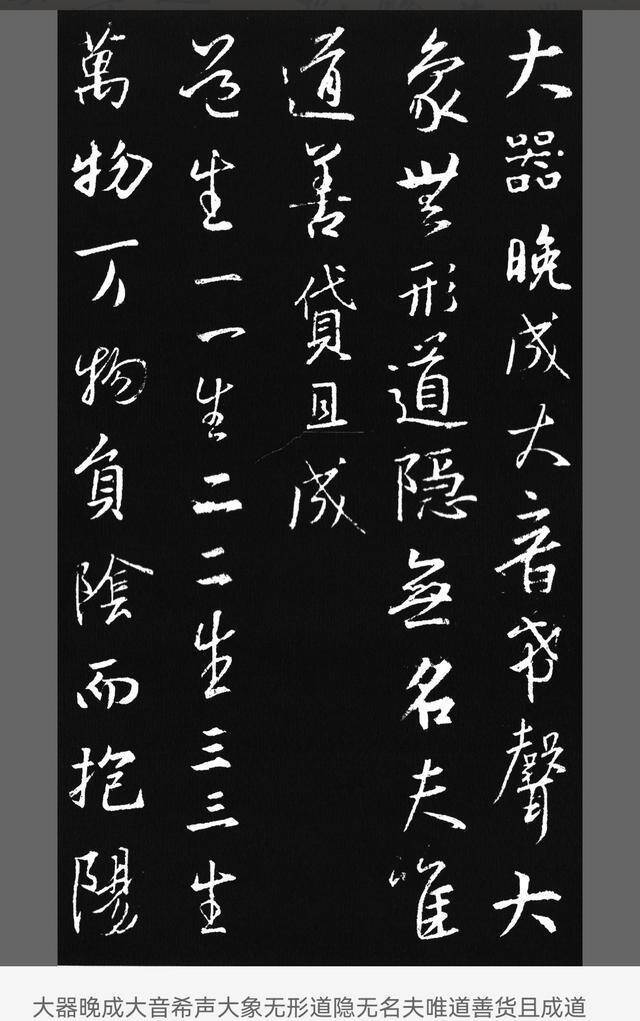 大器晚成大音希聲大
象無形道隱無名夫唯
道善貸且成
道生一一生二二生三三生
萬物万物負陰而抱陽
大器晚成大音希声大象无形道隐无名夫唯道善货且成道